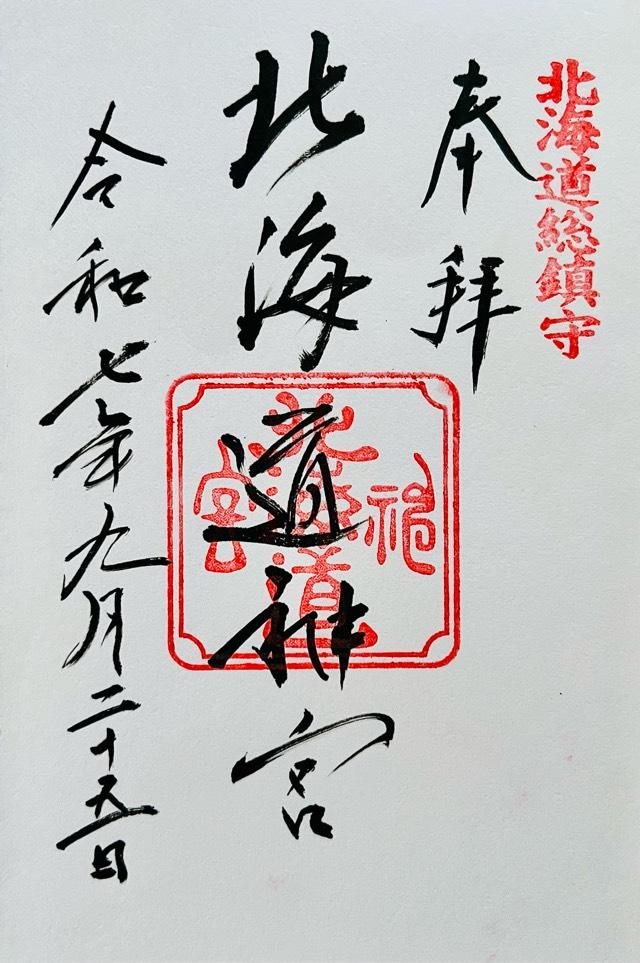 北海道総鎮守
奉拝
北海道神宮
北海道神宮
令和七年九月二十五日